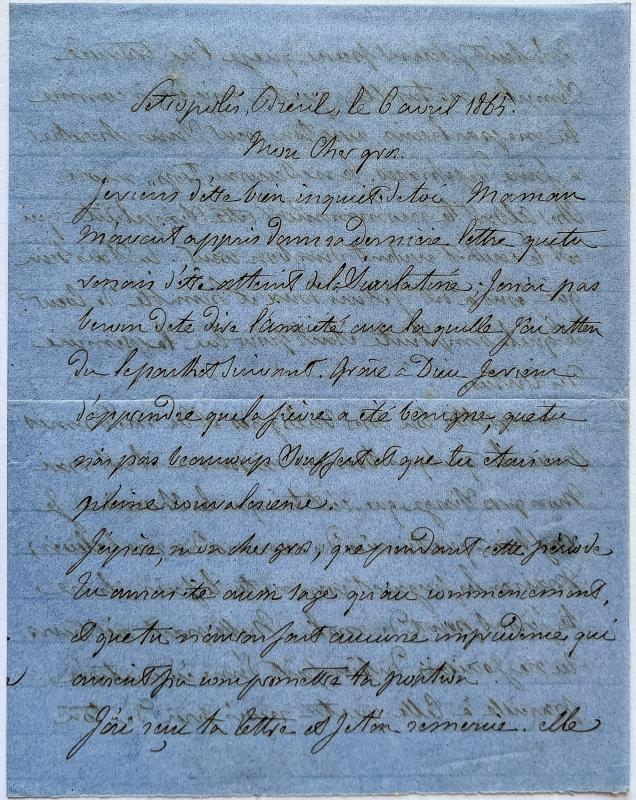 Petropolis, Brésil, le 6 avril 1865.
Mon cher gros.
Je viens d'être bien inquiet de toi. Maman
m'avait appris dans sa dernière lettre que tu
venais d'être atteint de la scarlatine. Je n'ai pas
besoin de te dire l'anxiété avec laquelle j'ai atten
du le paquet suivant. Grâce à Dieu je viens
d'apprendre que la fièvre a été bénigne, que tu
n'as pas beaucoup souffert et que tu étais en
pleine convalescence.
J'espère, mon cher gros, que pendant cette période
tu auras été aussi sage qu'au commencement,
et que tu n'auras fait aucune imprudence qui
aurait pu compromettre ta position.
J'ai reçu ta lettre et je t'en remercie. elle